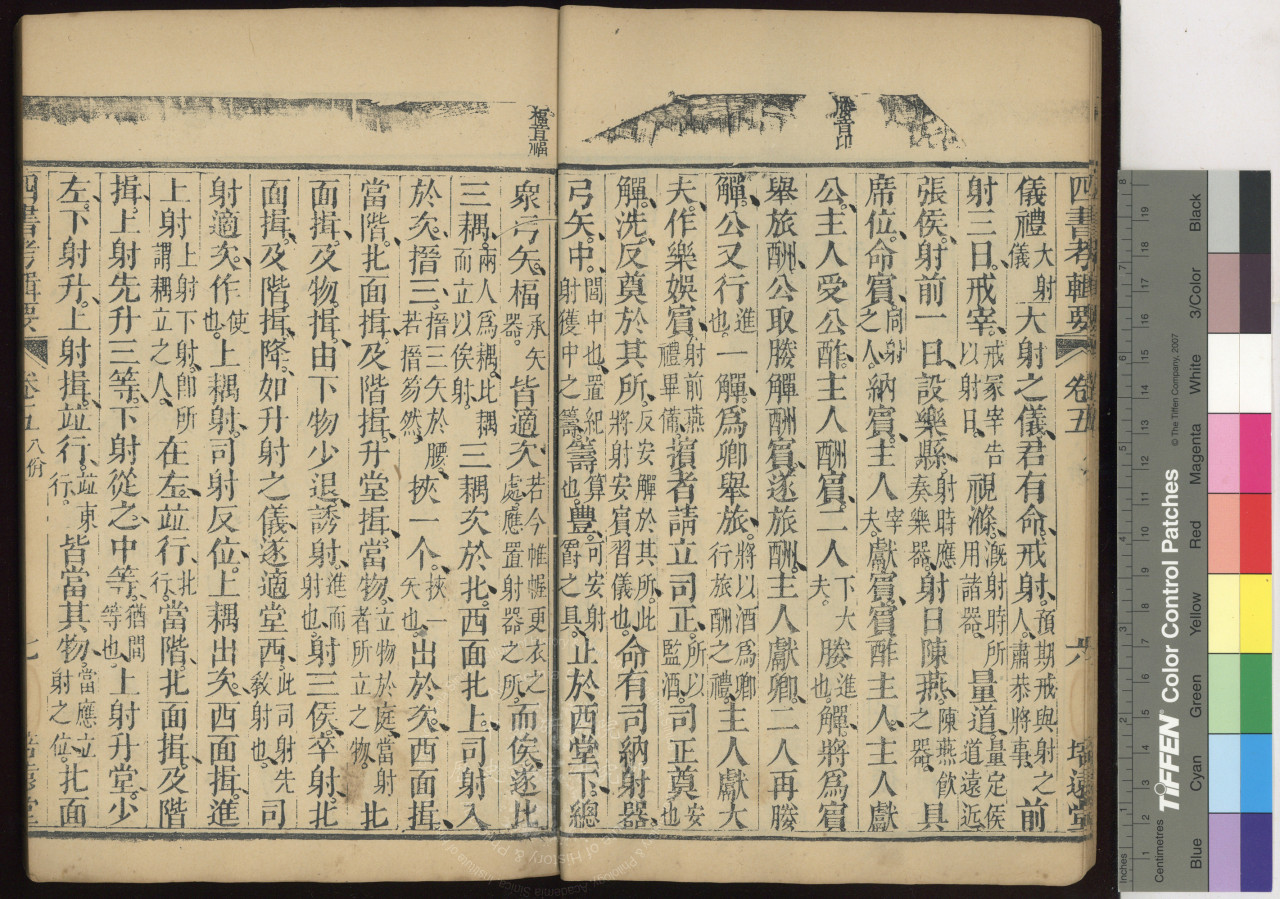 四書考輯要 卷五 六 培遠堂
儀禮大射儀 大射之儀君有命戒射預期戒與射之人肅恭將事前
射三日戒宰戒冢宰告以射日視滌溉射時所用諸器量道量定侯道遠近具
張侯射前一日設樂縣射時應奏樂器射日陳燕陳燕飲之器具
席位命賓向射之人納賓主人宰夫獻賓賓酢主人主人獻
公主人受公酢主人酬賓二人下大夫媵進也觶將爲賓
舉旅酬公取媵觶酬賓遂旅酬主人獻卿二人再媵
觶公又行進也一觶爲卿舉旅將以酒爲卿行旅酬之禮主人獻大
夫作樂娛賓射前燕禮畢備擯者請立司正所以監酒司正奠安也
觶洗反奠於其所反安觶於其所此將射安賓習儀也命有司納射器
弓矢中閭中也置紀射獲中之籌籌算也豐可安射爵之具止於西堂下總
楅音福
衆弓矢楅承矢器皆適次若今帷幄更衣之處應置射器之所而俟遂比
三耦兩人爲耦比耦而立以俟射三耦次於北西面北上司射入
於次搢三搢三矢於腰若搢笏然挾一个挾一矢也出於次西面揖
當階北面揖及階揖升堂揖當物立物於庭當射者所立之物北
面揖及物揖由下物少退誘射進而射也射三侯卒射北
面揖及階揖降如升射之儀遂適堂西此司射先敎射也司
射適次作使也上耦射司射反位上耦出次西面揖進
上射上射下射卽所謂耦立之人在左竝行北行當階北面揖及階
揖上射先升三等下射從之中等猶間等也上射升堂少
左下射升上射揖竝行竝東行皆當其物當應立射之位北面
四書考輯要 卷五 八佾 七 培遠堂
8
19
18
7
17
16
6
15
14
13
5
12
11
4
10
9
3
8
7
6
2
5
4
1
3
2
1
Inches
Centimetres
TIFFEN® Color Control Patches
© The Tiffen Company, 2007
Black
3/Color
White
Magenta
Red
Yellow
Green
Cyan
Blue